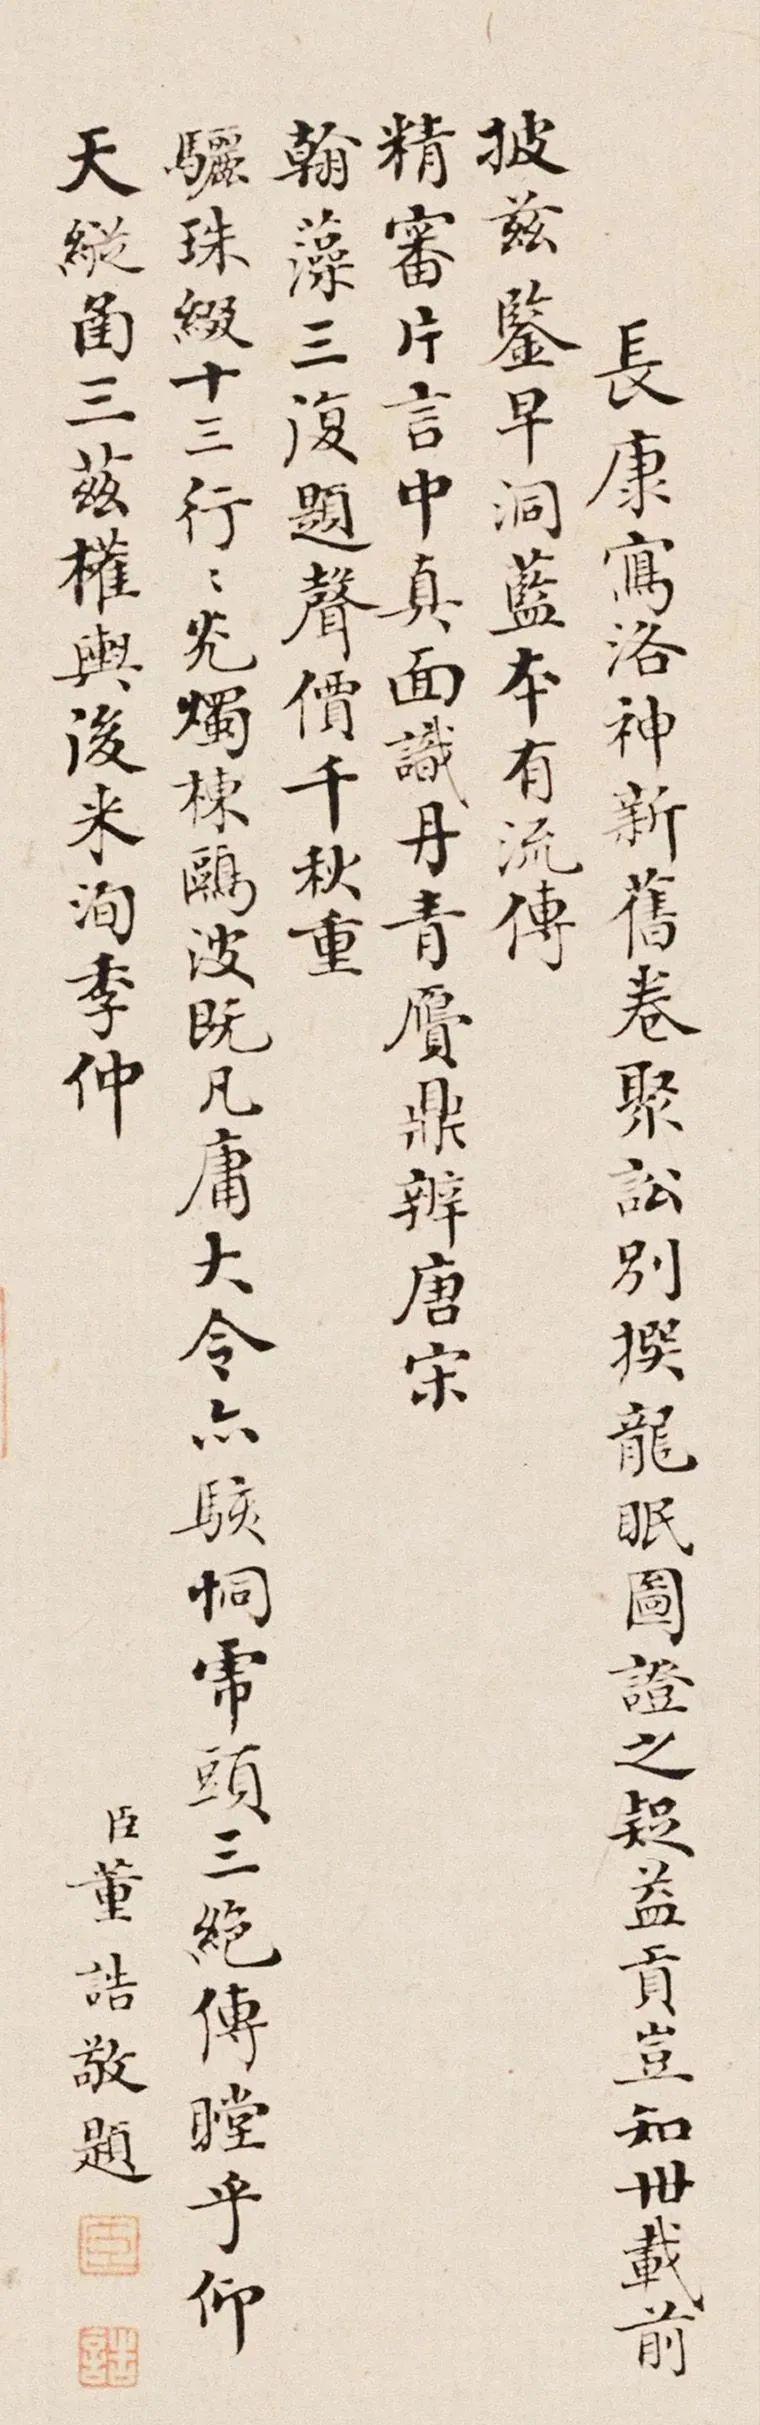 長康寫洛神新舊卷聚訟別撰龍眠圖證之疑益貢豈知卅載前
披茲鑒早洞藍本有流傳
精審片言中真面識丹青贋鼎辨唐宋
翰藻三復題聲價千秋重
驪珠綴十三行〻光燭棟鷗波既凡庸大令亦駭恫帝頭三絕傳瞠乎仰
天縱角三茲權輿後来洵季仲
臣董誥敬題
臣
誥